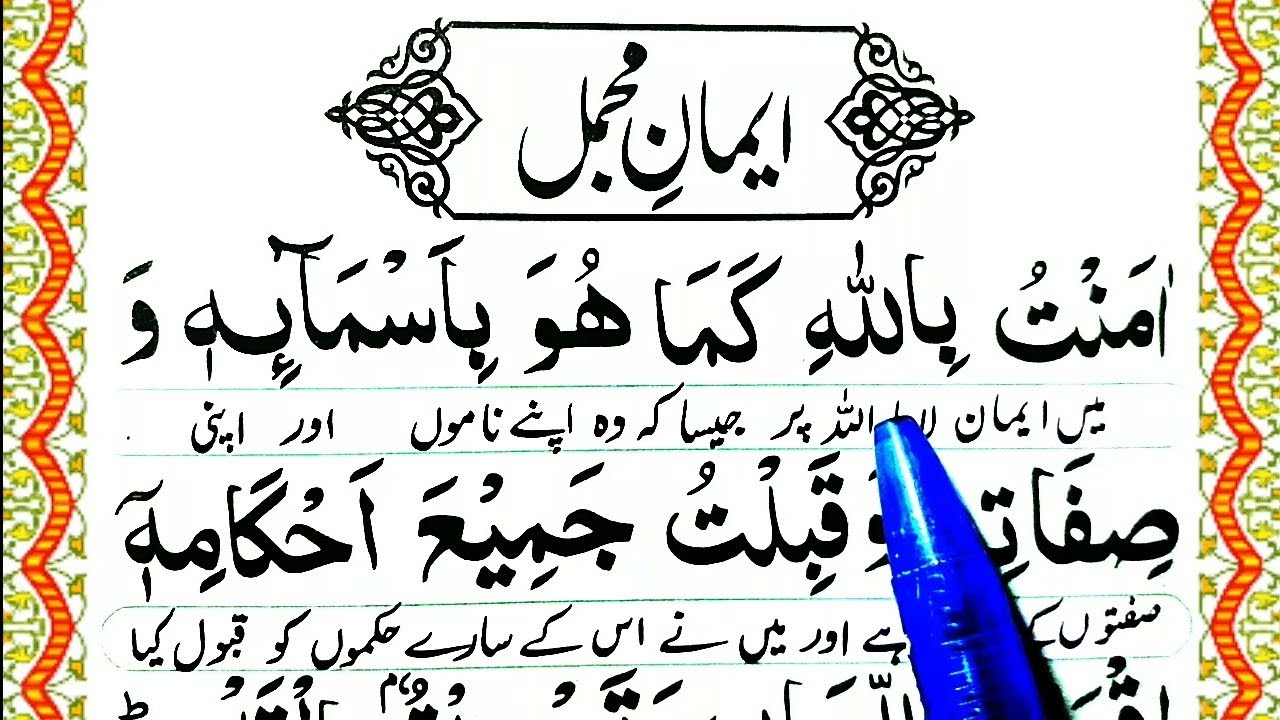 ایمانِ مُجمل
اٰمَنْتُ بِاللّٰهِ كَمَا هُوَ بِاَسْمَآئِهٖ وَ
میں ایمان اللہ پر جیسا کہ وہ اپنے ناموں اور اپنی
قَبِلْتُ جَمِيْعَ اَحْكَامِهٖٓ
صفتوں کے ہے اور میں نے اس کے سارے حکموں کو قبول کیا